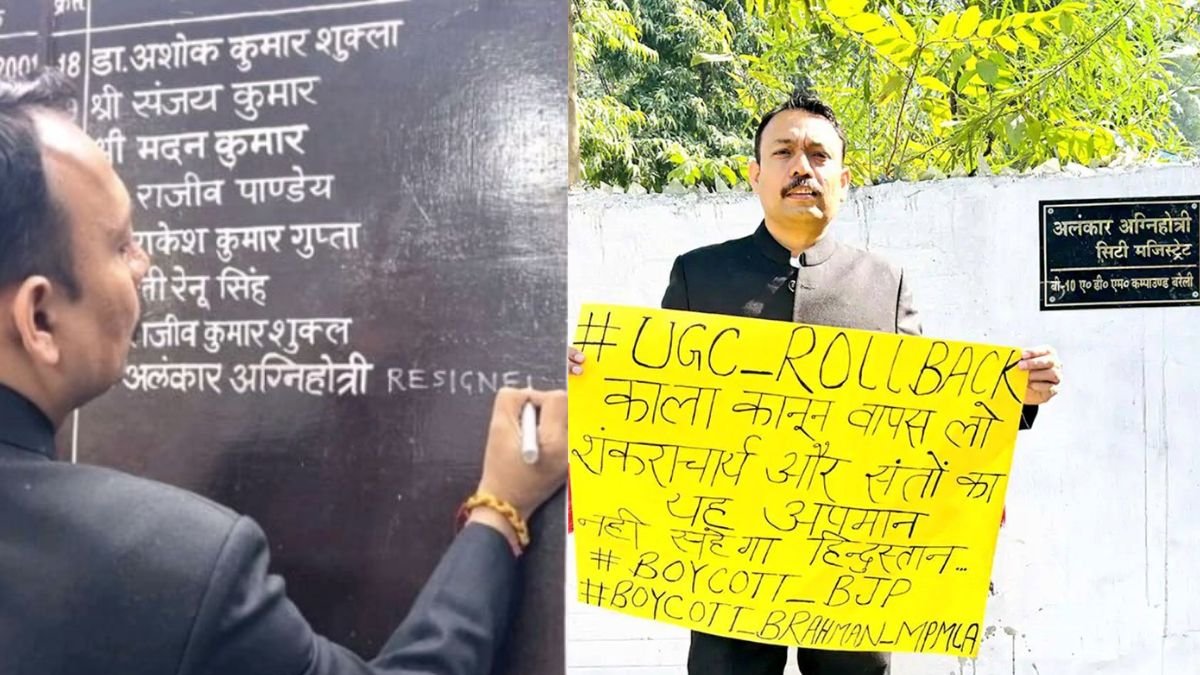 क्रम
2001 18 डा. अशोक कुमार शुक्ला
श्री संजय कुमार
मदन कुमार
राजीव पाण्डेय
राकेश कुमार गुप्ता
रेनू सिंह
राजीव कुमार शुक्ल
अलंकार अग्निहोत्री RESIGNE
#UGC_ROLLBACK
काला कानून वापस लो
शंकराचार्य और संतों का
यह अपमान
नही सहेगा हिन्दुस्तान...
#BOYCOTT_BJP
#BOYCOTT_BRAHMAN_MPMLA
अलंकार अग्निहोत्री
सिटी मजिस्ट्रेट
बी-10 ए० डी० एम० कम्पाउण्ड बरेली